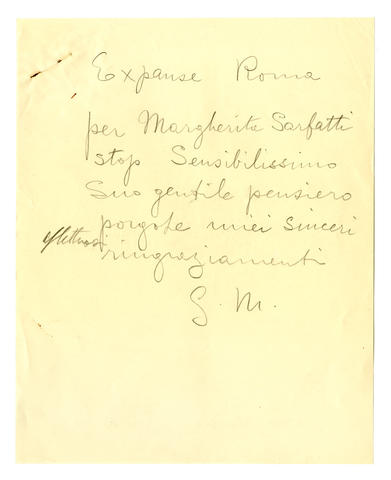 Expanse Roma
per Margherita Sarfatti
stop Sensibilissimo
Suo gentile pensiero
porgole miei sinceri
affettuosi ringraziamenti
G. M.